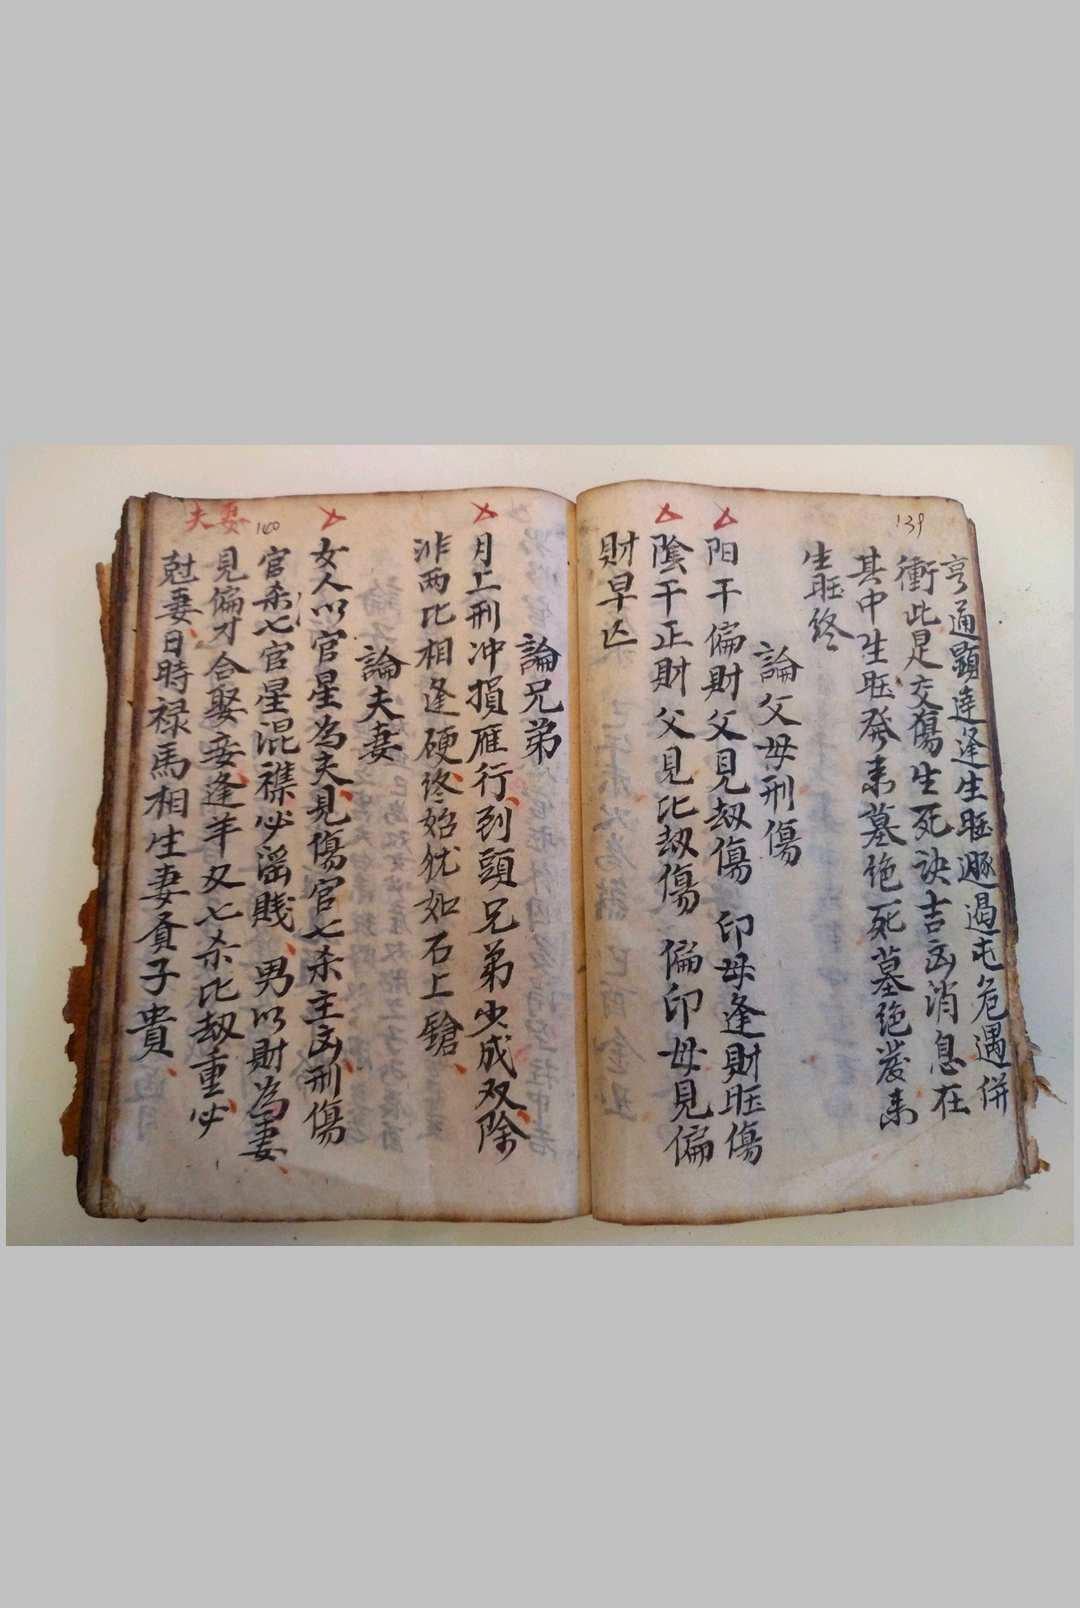 139
亨通顯達逢生旺遯遏屯危遇併
衝此是交傷生死訣吉凶消息在
其中生旺發来墓绝死墓绝發来
生旺终
論父母刑傷
阳干偏財父見刼傷 印母逢財旺傷
陰干正財父見比刼傷 偏印母見偏
財早亡
論兄弟
月上刑冲損雁行到頭兄弟少成双除
非两比相逢硬终始犹如石上鎗
論夫妻
女人以官星為夫見傷官七杀主凶刑傷
官杀七官星混襍必淫賎男以財為妻
見偏才合娶妾逢羊刃七杀比刼重必
尅妻日時禄馬相生妻賢子貴
夫妻
140